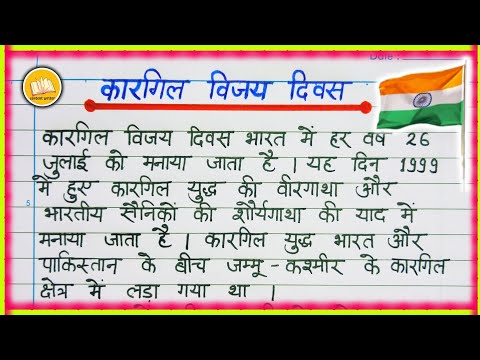 Date :
कारगिल विजय दिवस
कारगिल विजय दिवस भारत में हर वर्ष 26
जुलाई को मनाया जाता है । यह दिन 1999
में हुए कारगिल युद्ध की वीरगाथा और
भारतीय सैनिकों की शौर्यगाथा की याद में
मनाया जाता है । कारगिल युद्ध भारत और
पाकिस्तान के बीच जम्मू - कश्मीर के कारगिल
क्षेत्र में लड़ा गया था ।